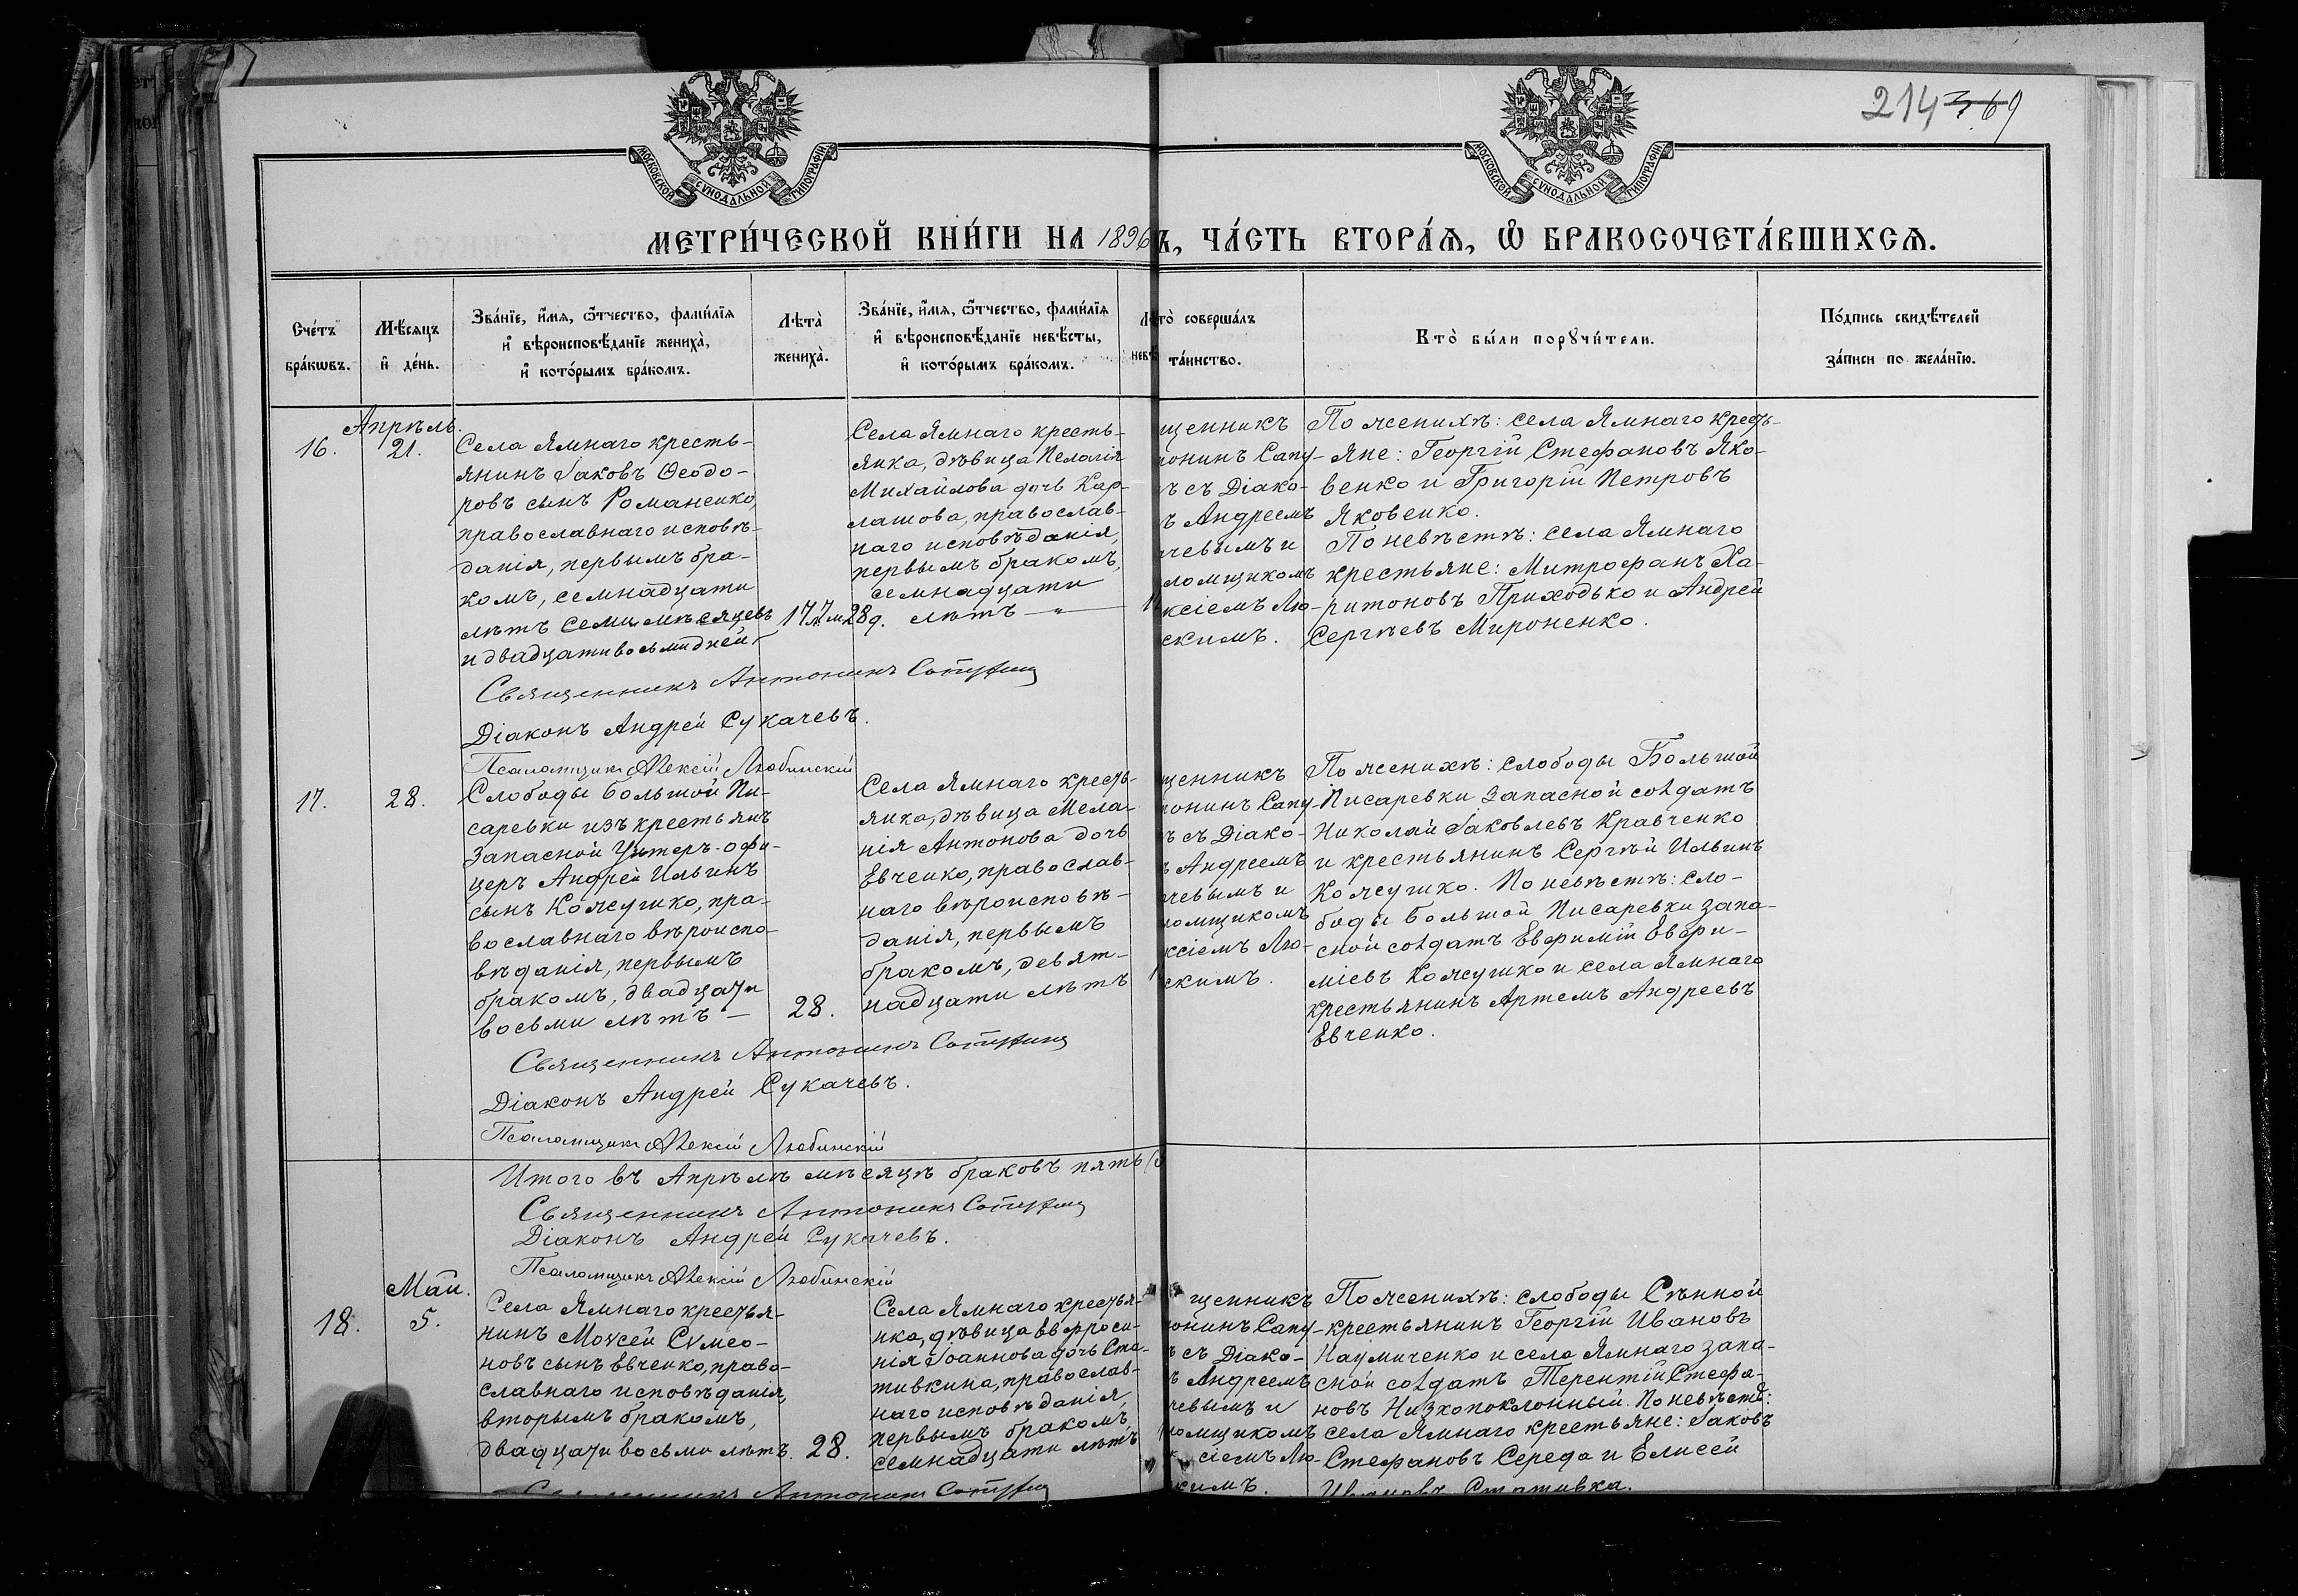 214 369
МОСКОВСКОЙ СѴНОДАЛЬНОЙ ТИПОГРАФІИ
МОСКОВСКОЙ СѴНОДАЛЬНОЙ ТИПОГРАФІИ
МЕТРИ́ЧЕСКОЙ КНИ́ГИ НА 1896 Ъ, ЧА́СТЬ ВТОРА́Ѧ, Ѡ҆ БРАКОСОЧЕТА́ВШИХСѦ.
Сче́тъ
бра́кѡвъ.
Мѣ́сѧцъ
и҆ де́нь.
Зва́нїе, и҆́мѧ, ѻ҆́тчество, фами́лїѧ
и҆ вѣроисповѣ́данїе жениха̀,
и҆ кото́рымъ бра́комъ.
Лѣта̀
жениха̀.
Зва́нїе, и҆́мѧ, ѻ҆́тчество, фами́лїѧ
и҆ вѣроисповѣ́данїе невѣ́сты,
и҆ кото́рымъ бра́комъ.
Лѣ
невѣ
то̀ соверша́лъ
та́инство.
Кто̀ бы́ли порꙋчи́тели.
По́дпись свидѣ́телей
за́писи по жела́нїю.
Апрѣль.
16.
21.
Села Ямнаго кресть-
янинъ Іаковъ Ѳеодо-
ровъ сынъ Романенко,
православнаго исповѣ-
данія, первымъ бра-
комъ, семнадцати
лѣтъ семи мѣсяцевъ
и двадцати восьми дней
17 л. 7 м. 28 д.
Села Ямнаго кресть-
янка, дѣвица Пелагія
Михайлова дочь Кар-
лашова, православ-
наго исповѣданія,
первымъ бракомъ,
семнадцати
лѣтъ — „ —
1
щенникъ
тонинъ Сапу-
ъ съ Діако-
ъ Андреемъ
чевымъ и
ломщикомъ
ксіемъ Лю-
скимъ.
По женихѣ: села Ямнаго кресть-
яне: Георгій Стефановъ Яко-
венко и Григорій Петровъ
Яковенко.
По невѣстѣ: села Ямнаго
крестьяне: Митрофанъ Ха-
ритоновъ Приходько и Андрей
Сергѣевъ Мироненко.
Священникъ Антонинъ Сапухинъ
Діаконъ Андрей Сукачевъ.
Псаломщикъ Алексій Любинскій
17.
28.
Слободы Большой Пи-
саревки изъ крестьянъ
Запасной Унтеръ-офи-
церъ Андрей Ильинъ
сынъ Кожушко, пра-
вославнаго вѣроиспо-
вѣданія, первымъ
бракомъ, двадцати
восьми лѣтъ —
28.
Села Ямнаго кресть-
янка, дѣвица Мела-
нія Антонова дочь
Евченко, православ-
наго вѣроисповѣ-
данія, первымъ
бракомъ, девят-
надцати лѣтъ
1
щенникъ
тонинъ Сапу-
ъ съ Діако-
ъ Андреемъ
чевымъ и
ломщикомъ
ксіемъ Лю-
скимъ.
По женихѣ: слободы Большой
Писаревки Запасной солдатъ
Николай Іаковлевъ Кравченко
и крестьянинъ Сергѣй Ильинъ
Кожушко. По невѣстѣ: сло-
боды Большой Писаревки запа-
сной солдатъ Евфимій Евфи-
міевъ Кожушко и села Ямнаго
крестьянинъ Артемъ Андреевъ
Евченко.
Священникъ Антонинъ Сапухинъ
Діаконъ Андрей Сукачевъ.
Псаломщикъ Алексій Любинскій
Итого въ Апрѣлѣ мѣсяцѣ браковъ пять (5
Священникъ Антонинъ Сапухинъ
Діаконъ Андрей Сукачевъ.
Псаломщикъ Алексій Любинскій
Май.
18.
5.
Села Ямнаго крестья-
нинъ Моѵсей Сѵмео-
новъ сынъ Евченко, право-
славнаго исповѣданія,
вторымъ бракомъ,
двадцати восьми лѣтъ.
28.
Села Ямнаго крестья-
нка, дѣвица Евфроси-
нія Іоаннова дочь Ста-
тивкина, православ-
наго исповѣданія,
первымъ бракомъ,
семнадцати лѣтъ
щенникъ
тонинъ Сапу-
ъ съ Діако-
ъ Андреемъ
чевымъ и
ломщикомъ
сіемъ Лю-
кимъ.
По женихѣ: слободы Сѣнной
крестьянинъ Георгій Ивановъ
Наумиченко и села Ямнаго запа-
сной солдатъ Терентій Стефа-
новъ Низкопоклонный. По невѣстѣ:
села Ямнаго крестьяне: Іаковъ
Стефановъ Середа и Елисей
Ивановъ Стативка.
Священникъ Антонинъ Сапухинъ